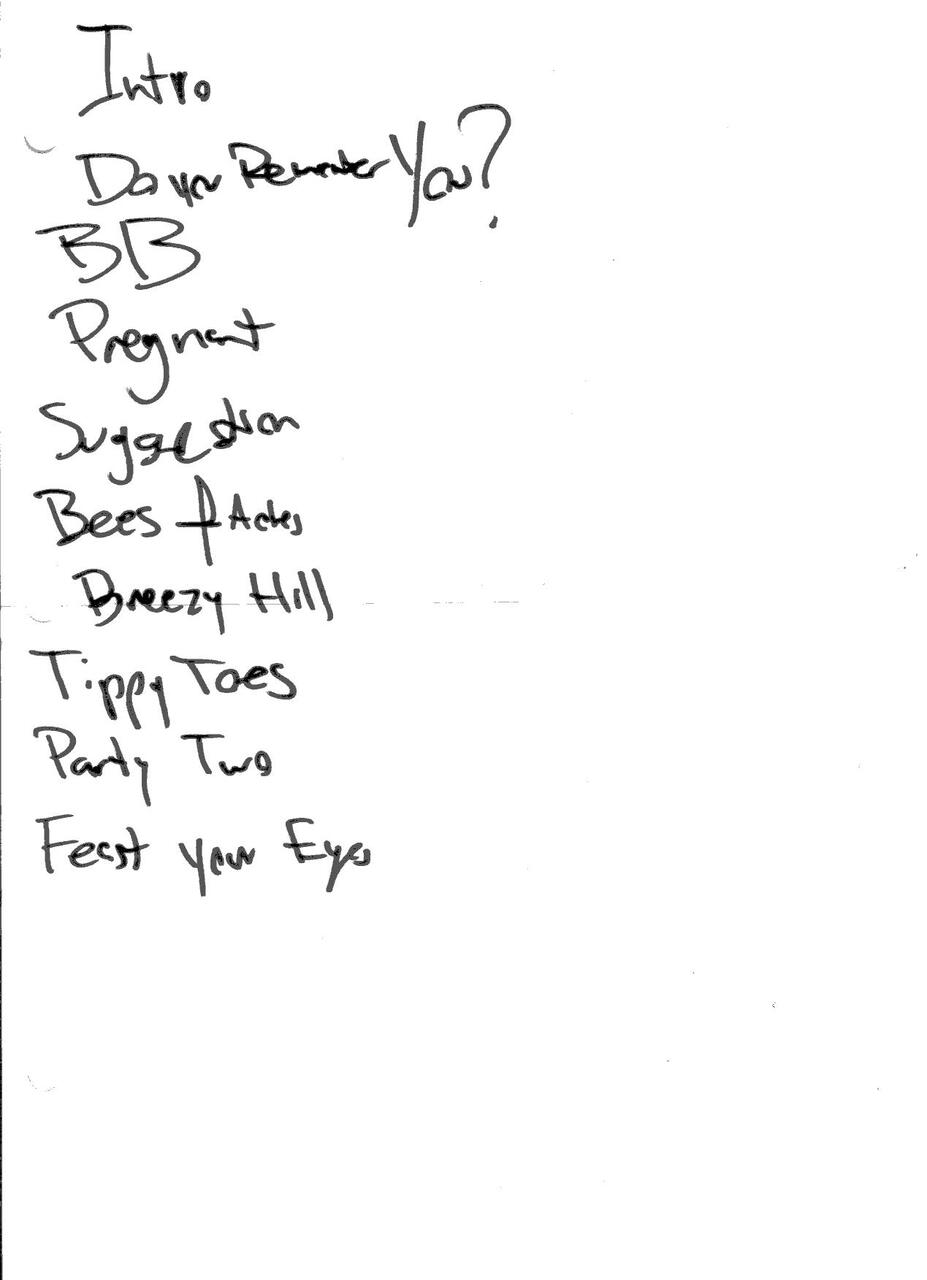 Intro
Do you Remember You?
BB
Pregnant
Suggestion
Bees &
Breezy Hill
Tippy Toes
Party Two
Feast your Eyes